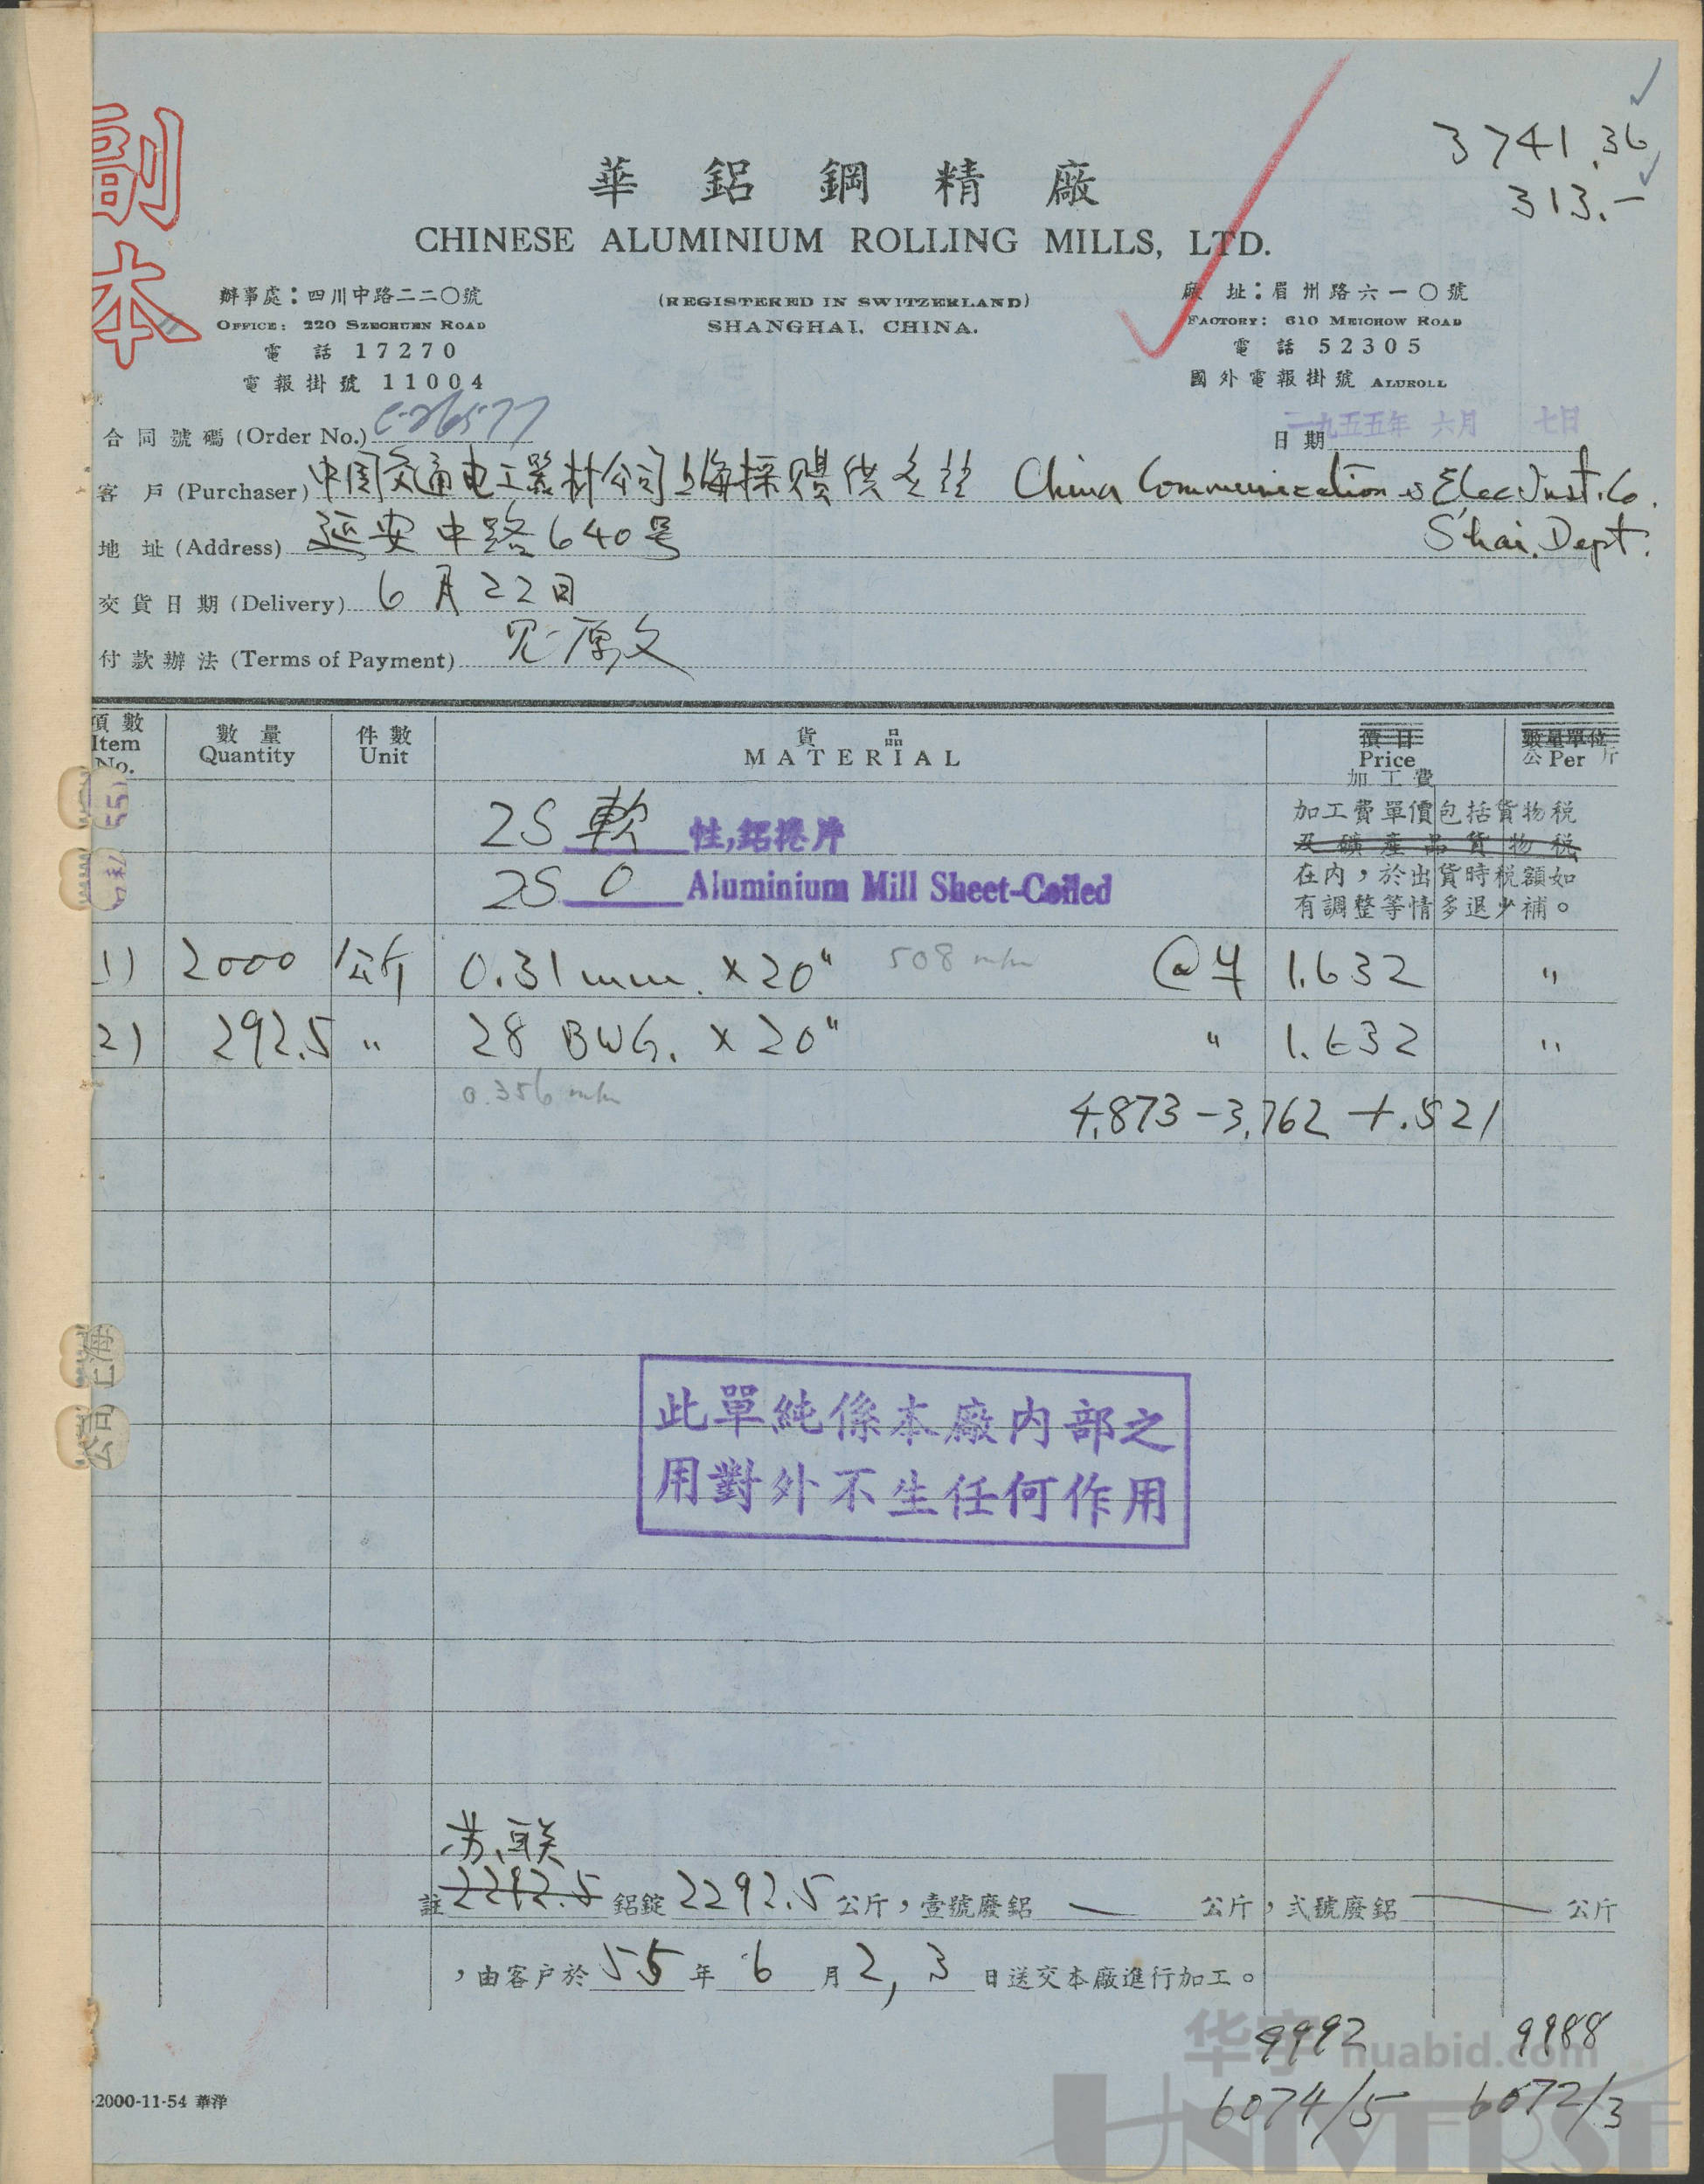 副本
3741.36
313.-
華鋁鋼精廠
CHINESE ALUMINIUM ROLLING MILLS, LTD.
(REGISTERED IN SWITZERLAND)
SHANGHAI, CHINA.
辦事處：四川中路二二〇號
OFFICE: 220 SZECHUEN ROAD
電話 17270
電報掛號 11004
廠址：眉州路六一〇號
FACTORY: 610 MEICHOW ROAD
電話 52305
國外電報掛號 ALUROLL
合同號碼 (Order No.) C-26577
日期 一九五五年 六月 七日
客戶 (Purchaser) 中国交通电工器材公司上海採購供应站 China Communication & Elec. Inst. Co.
S'hai. Dept.
地址 (Address) 延安中路640号
交貨日期 (Delivery) 6月22日
付款辦法 (Terms of Payment) 见原文
項數 Item No.
數量 Quantity
件數 Unit
貨品 MATERIAL
價目 Price 加工費
數量單位 公 Per 斤
2S 軟 性,鋁捲片
2S 0 Aluminium Mill Sheet-Coiled
加工費單價包括貨物稅
及礦產品貨物稅
在內，於出貨時稅額如
有調整等情多退少補。
1) 2000 公斤 0.31 mm. × 20" 508 m/m @¥ 1.632 "
2) 292.5 " 28 BWG. × 20" " 1.632 "
0.356 m/m
4.873 - 3.762 + .521
此單純係本廠內部之
用對外不生任何作用
苏联
註 2292.5 鋁錠 2292.5 公斤，壹號廢鋁 — 公斤，弍號廢鋁 — 公斤
，由客户於 55 年 6 月 2, 3 日送交本廠進行加工。
9992 9988
6074/5 6072/3
-2000-11-54 華洋
华宇 huabid.com
UNIVERSE